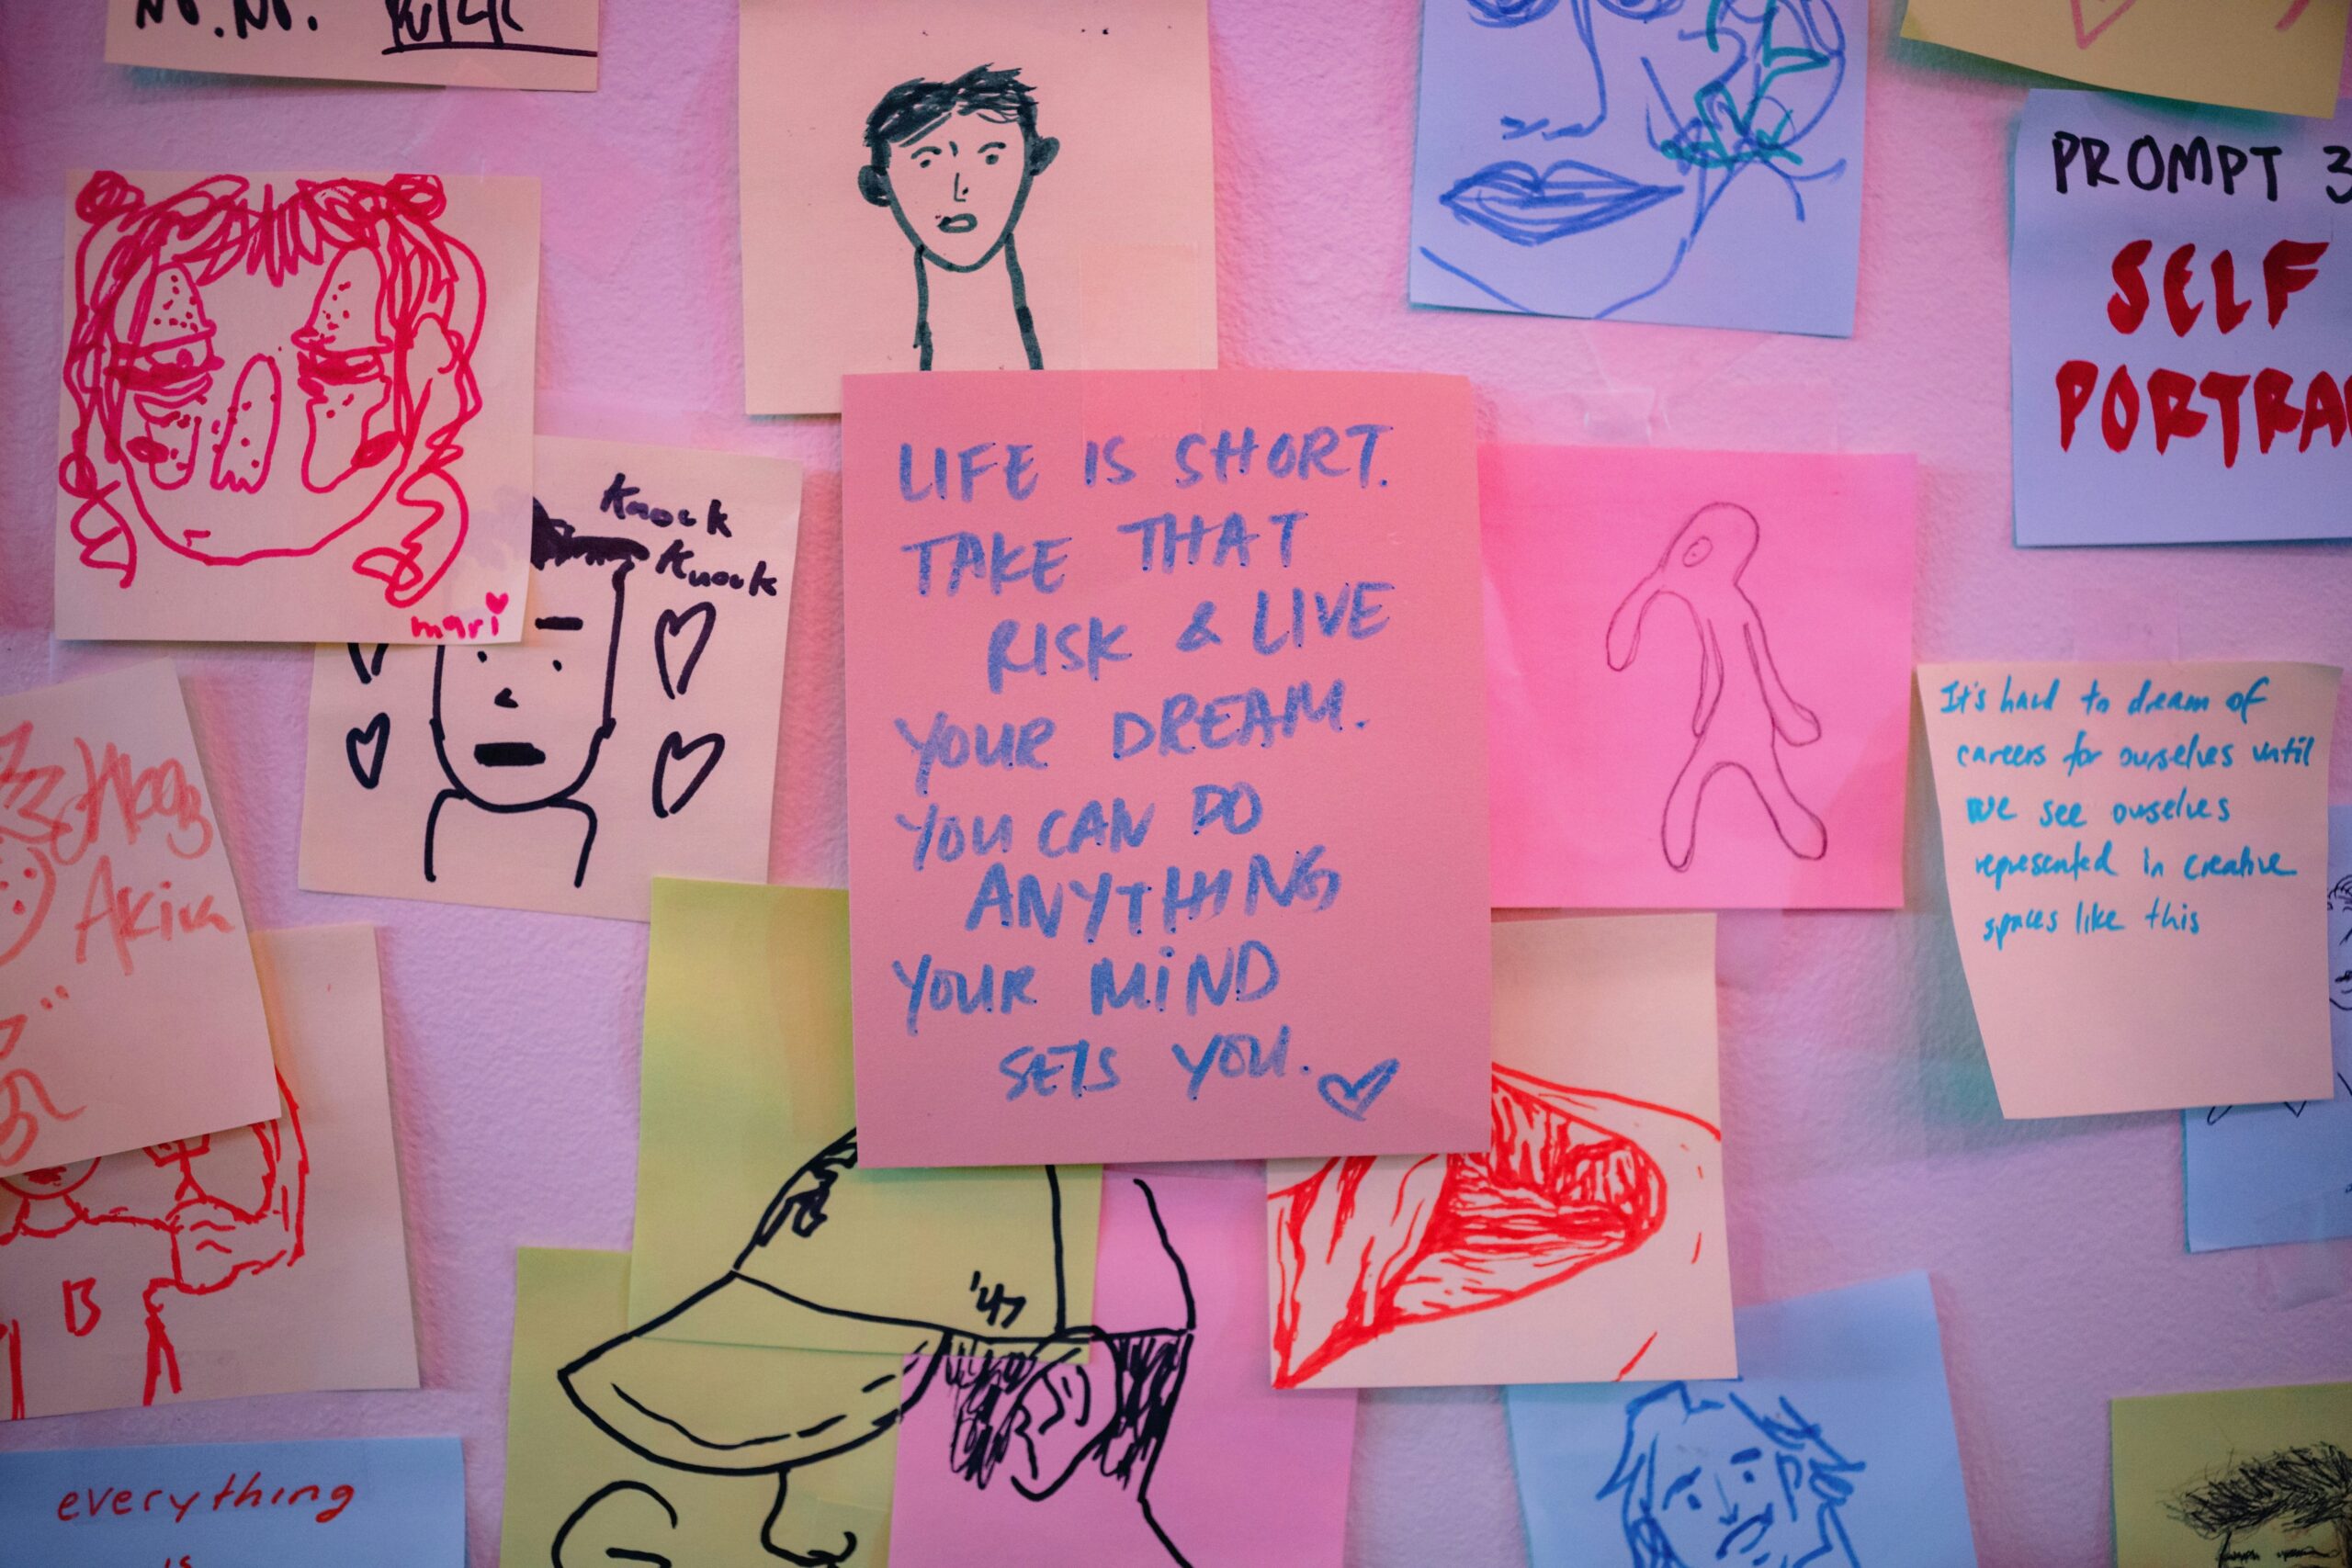 PROMPT 3
SELF
PORTRA
Knock
Knock
mari
LIFE IS SHORT.
TAKE THAT
RISK & LIVE
YOUR DREAM.
YOU CAN DO
ANYTHING
YOUR MIND
SETS YOU.
It's hard to dream of
careers for ourselves until
we see ourselves
represented in creative
spaces like this
Akira
B
'47
everything
is